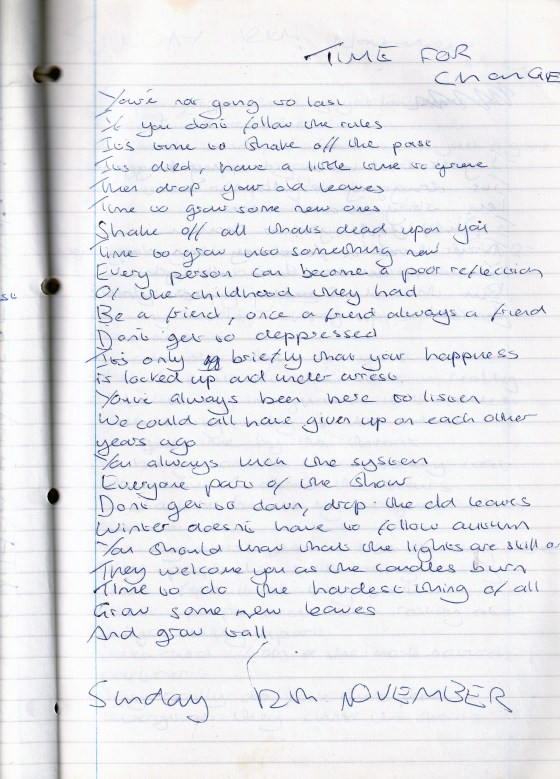 TIME FOR
CHANGE
You're not going to last
If you don't follow the rules
It's time to shake off the past
It's died, have a little time to grieve
Then drop your old leaves
Time to grow some new ones
Shake off all that's dead upon you
Time to grow into something new
Every person can become a poor reflection
Of the childhood they had
Be a friend, once a friend always a friend
Don't get to deppressed
It's only briefly that your happness
is locked up and under arrest
You've always been here to listen
We could all have given up on each other
years ago
You always the system
Everyone part of the show
Don't get to down, drop the old leaves
Winter doesn't have to follow autumn
You should know that the lights are still o
They welcome you as the candles burn
Time to do the hardest thing of all
Grow some new leaves
And grow tall
Sunday 12th NOVEMBER